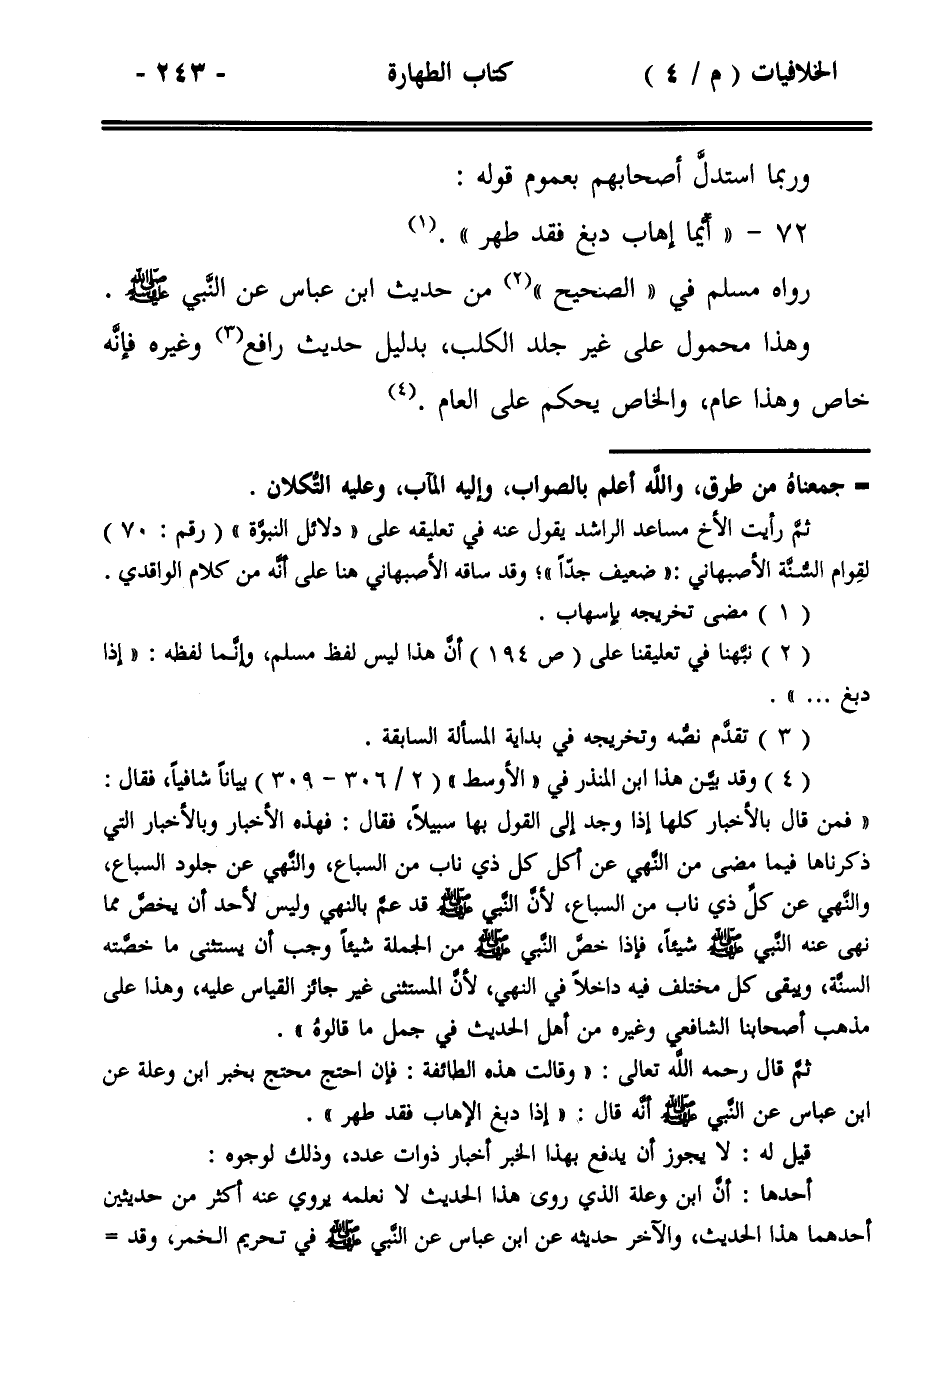 الخلافيات ( م / ٤ ) كتاب الطهارة - ٢٤٣ -
وربما استدلَّ أصحابهم بعموم قوله :
٧٢ – « أيُّما إهاب دبغ فقد طهر » .(١)
رواه مسلم في « الصحيح »(٢) من حديث ابن عباس عن النَّبي ﷺ .
وهذا محمول على غير جلد الكلب، بدليل حديث رافع(٣) وغيره فإنَّه
خاص وهذا عام، والخاص يحكم على العام .(٤)
= جمعناهُ من طرق، واللَّه أعلم بالصواب، وإليه المآب، وعليه التُّكلان .
ثمَّ رأيت الأخ مساعد الراشد يقول عنه في تعليقه على « دلائل النبوَّة » ( رقم : ٧٠ )
لقِوام السُّنَّة الأصبهاني :« ضعيف جدّاً »؛ وقد ساقه الأصبهاني هنا على أنَّه من كلام الواقدي .
( ١ ) مضى تخريجه بإسهاب .
( ٢ ) نبَّهنا في تعليقنا على ( ص ١٩٤ ) أنَّ هذا ليس لفظ مسلم، وإنَّما لفظه : « إذا
دبغ ... » .
( ٣ ) تقدَّم نصُّه وتخريجه في بداية المسألة السابقة .
( ٤ ) وقد بيَّن هذا ابن المنذر في « الأوسط » ( ٢ / ٣٠٦ – ٣٠٩ ) بياناً شافياً، فقال :
« فمن قال بالأخبار كلها إذا وجد إلى القول بها سبيلاً، فقال : فهذه الأخبار وبالأخبار التي
ذكرناها فيما مضى من النَّهي عن أكل كل ذي ناب من السباع، والنَّهي عن جلود السباع،
والنَّهي عن كلِّ ذي ناب من السباع، لأنَّ النَّبي ﷺ قد عمَّ بالنهي وليس لأحد أن يخصَّ مما
نهى عنه النَّبي ﷺ شيئاً، فإذا خصَّ النَّبي ﷺ من الجملة شيئاً وجب أن يستثنى ما خصَّته
السنَّة، ويبقى كل مختلف فيه داخلاً في النهي، لأنَّ المستثنى غير جائز القياس عليه، وهذا على
مذهب أصحابنا الشافعي وغيره من أهل الحديث في جمل ما قالوهُ » .
ثمَّ قال رحمه اللَّه تعالى : « وقالت هذه الطائفة : فإن احتج محتج بخبر ابن وعلة عن
ابن عباس عن النَّبي ﷺ أنَّه قال : « إذا دبغ الإهاب فقد طهر » .
قيل له : لا يجوز أن يدفع بهذا الخبر أخبار ذوات عدد، وذلك لوجوه :
أحدها : أنَّ ابن وعلة الذي روى هذا الحديث لا نعلمه يروي عنه أكثر من حديثين
أحدهما هذا الحديث، والآخر حديثه عن ابن عباس عن النَّبي ﷺ في تحريم الخمر، وقد =